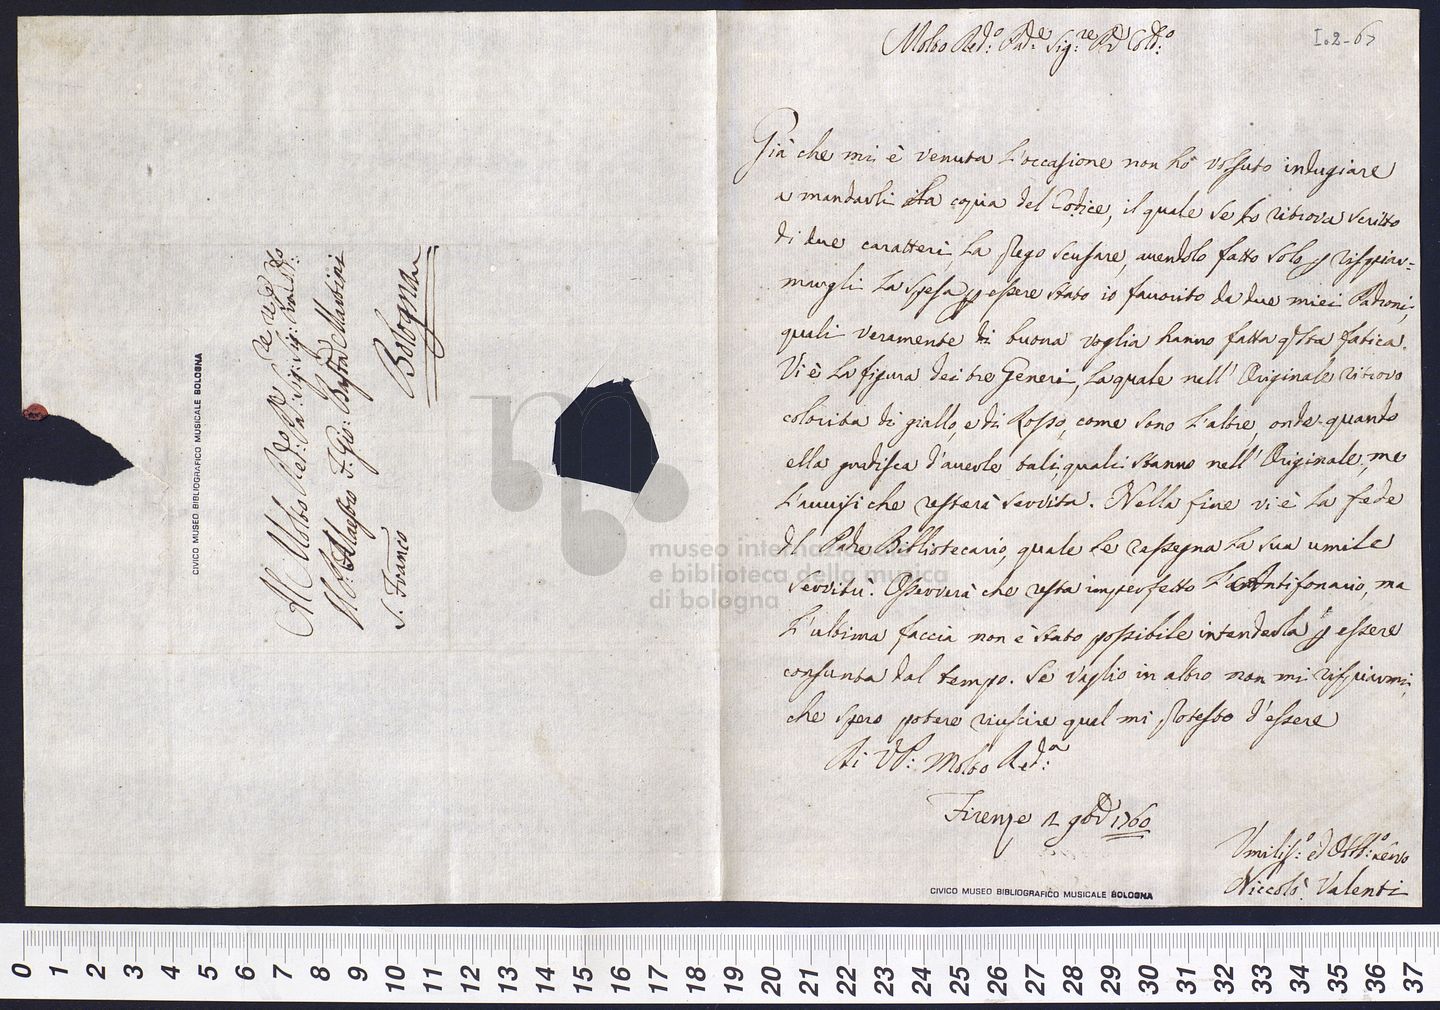 Al Molto Red:do Pad:e Sig:re Sig: 
Il P: Maestro F. Gio: Batta Martini
S. Franco
Bologna
CIVICO MUSEO BIBLIOGRAFICO MUSICALE BOLOGNA
I.2-67
Molto Red:o Pad:e Sig:re Pne Col:mo
Già che mi è venuta l'occasione non hò volsuto indugiare
a mandarli la copia del Codice, il quale se lo ritrova scritto
di due caratteri, la prego scusare, avendolo fatto solo p rispiar=
miargli la spesa p essere stato io favorito da due miei Padroni,
quali veramente di buona voglia hanno fatta qsta fatica.
Vi è la figura dei tre Generi, la quale nell' Originale ritrovo
colorita di giallo, e di Rosso, come sono l'altre, onde quando
ella gradisca d'averle tali, quali stanno nell' Originale, me
l'avvisi che resterà servita. Nella fine vi è la fede
del Padre Bibliotecario, quale le rassegna la sua umile
servitù. Osserverà che resta imperfetto l'Antifonario, ma
l'ultima faccia non è stato possibile intenderla p essere
consunta dal tempo. Se vaglio in altro non mi rispiarmi,
che spero potere riuscire qual mi protesto d'essere
Di VP: Molto Red:a
Firenze 9bre 1760
Umilis:o ed Obb:o servo
Niccolò Valenti
CIVICO MUSEO BIBLIOGRAFICO MUSICALE BOLOGNA
museo internazionale
e biblioteca della musica
di bologna
0 1 2 3 4 5 6 7 8 9 10 11 12 13 14 15 16 17 18 19 20 21 22 23 24 25 26 27 28 29 30 31 32 33 34 35 36 37